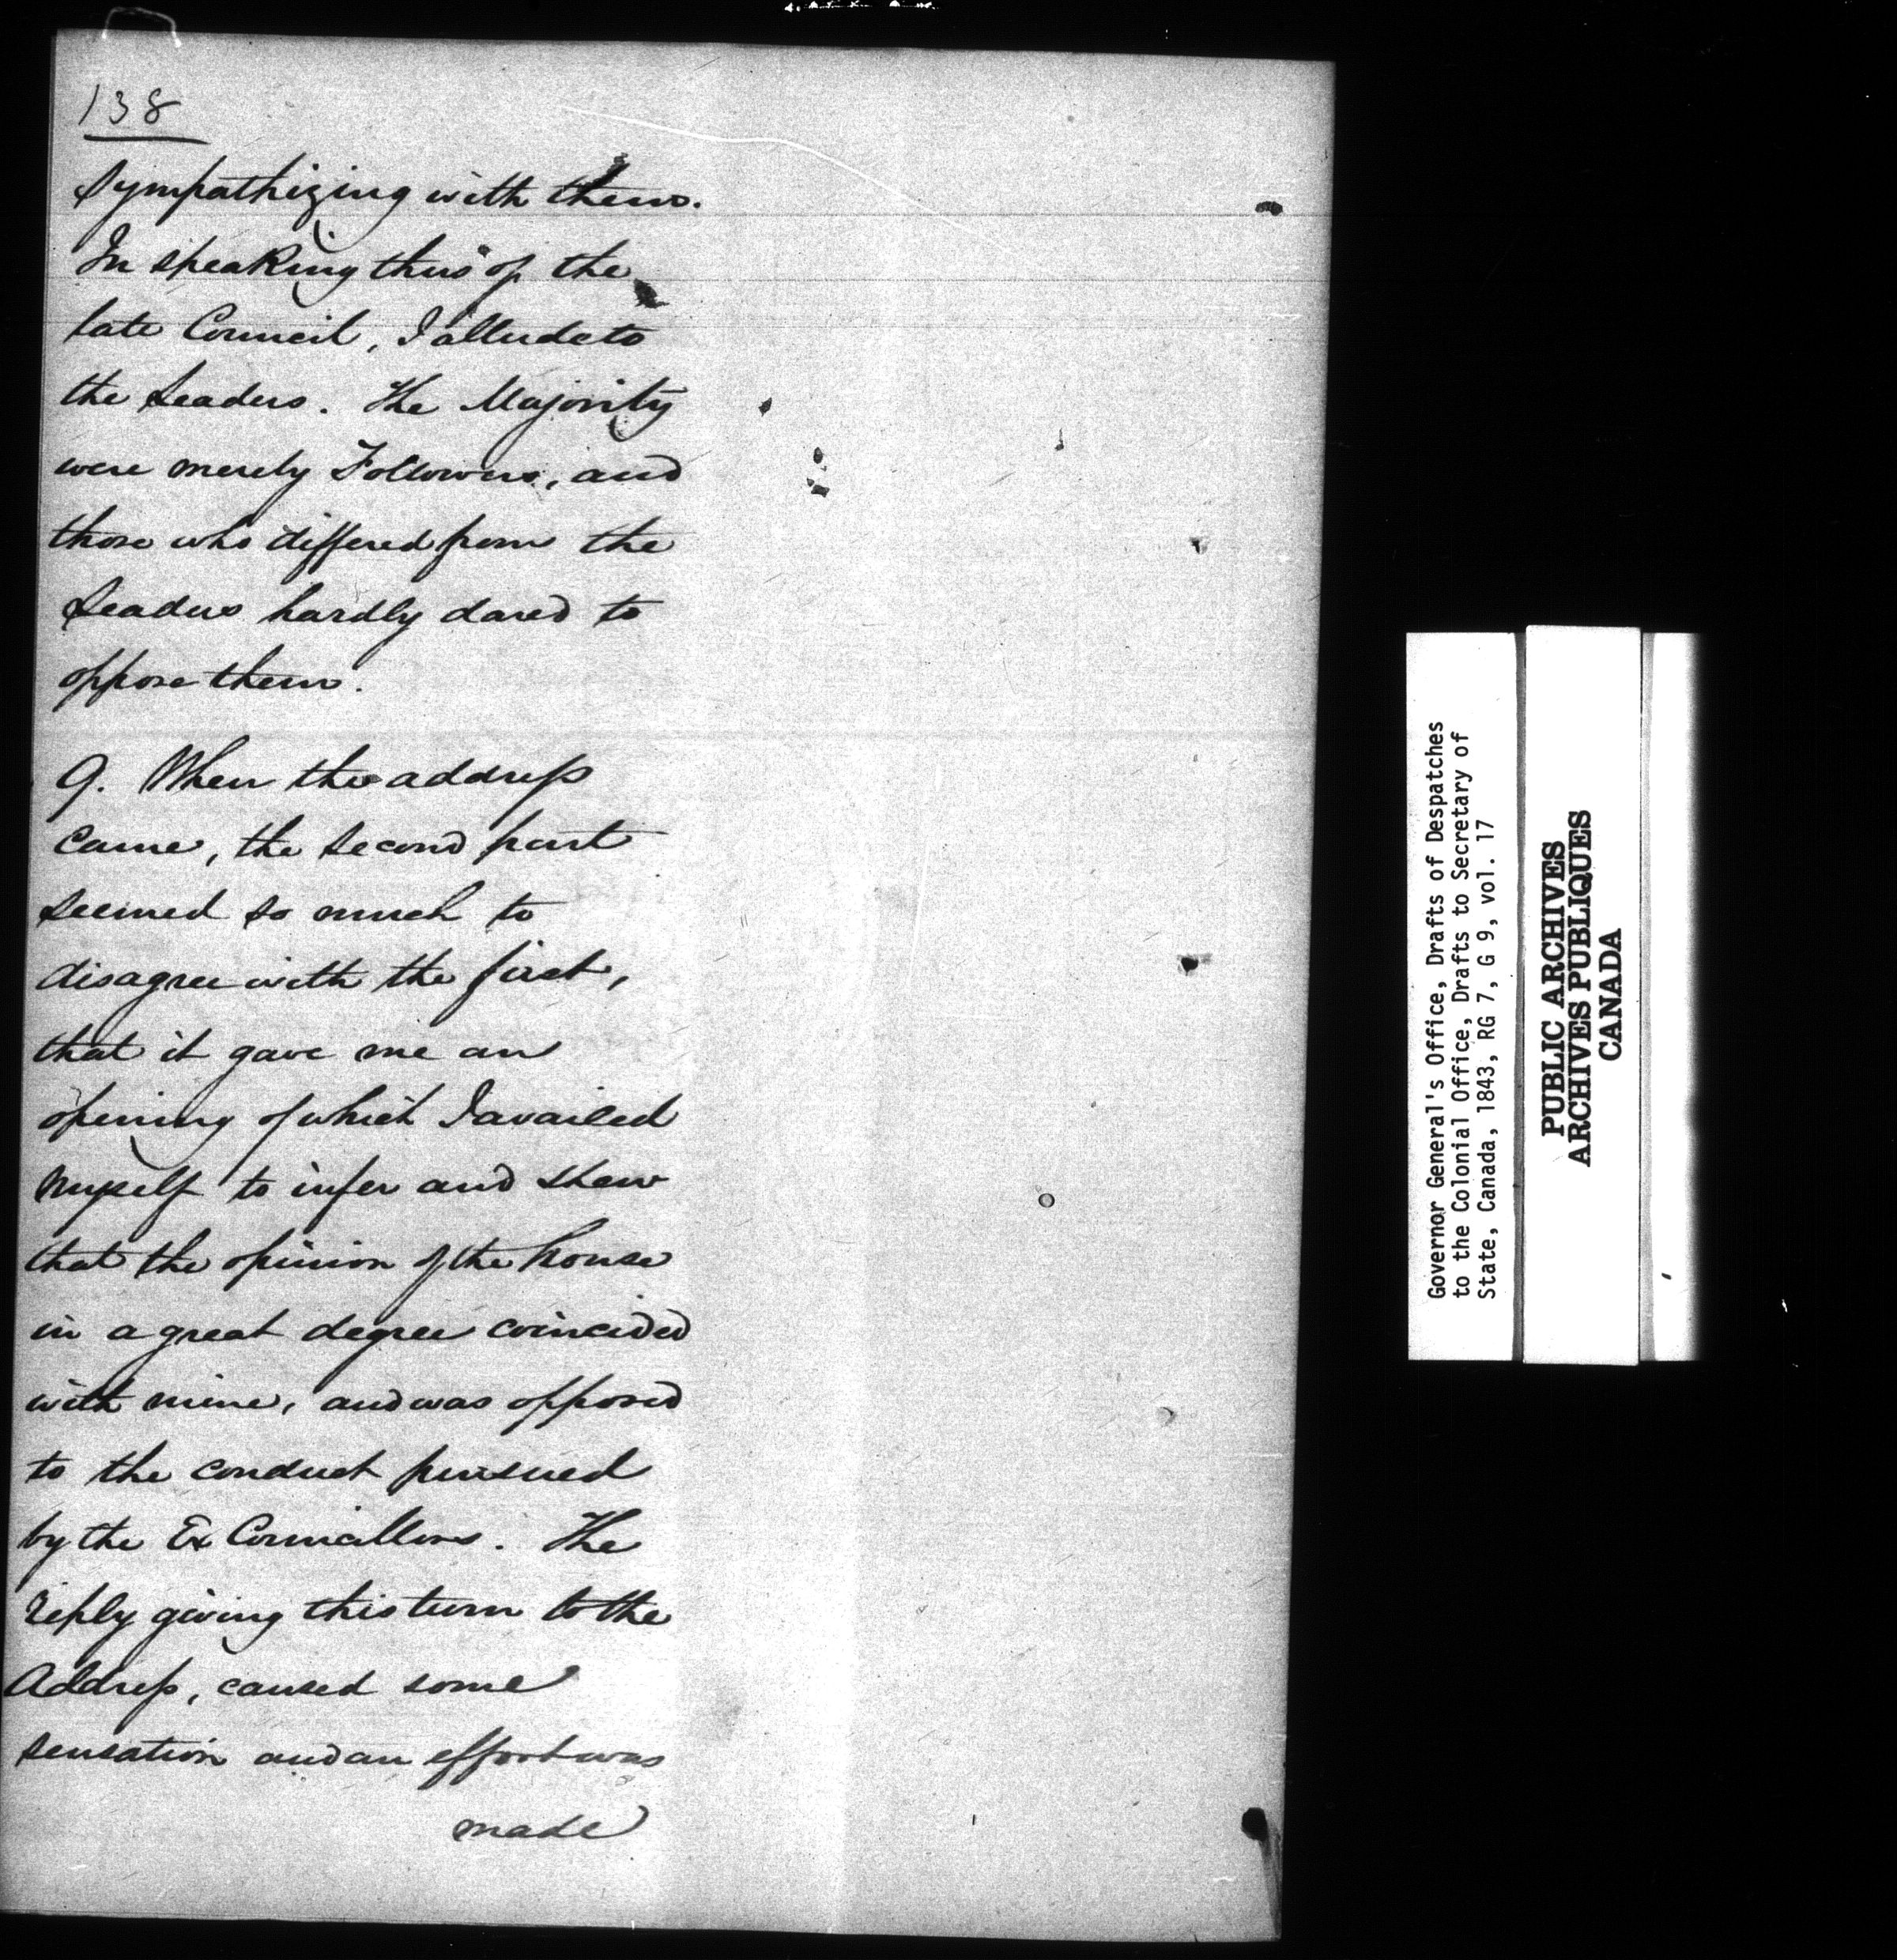 138
sympathizing with them.
In speaking thus of the
late Council, I allude to
the Leaders. The Majority
were merely Followers, and
those who differed from the
Leaders hardly dared to
oppose them.
9. When the address
came, the second part
seemed so much to
disagree with the first,
that it gave me an
opening of which I availed
myself to infer and shew
that the opinion of the house
in a great degree coincided
with mine, and was opposed
to the conduct pursued
by the Ex Councillors. The
reply giving this turn to the
Address, caused some
sensation and an effort was
made
Governor General's Office, Drafts of Despatches
to the Colonial Office, Drafts to Secretary of
State, Canada, 1843, RG 7, G 9, vol. 17
PUBLIC ARCHIVES
ARCHIVES PUBLIQUES
CANADA